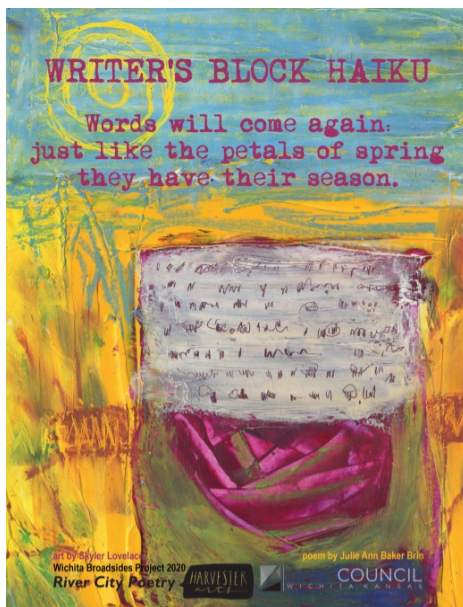 WRITER'S BLOCK HAIKU
Words will come again:
just like the petals of spring
they have their season.
art by Skyler Lovelace
Wichita Broadsides Project 2020
River City Poetry
HARVESTER
arts
poem by Julie Ann Baker Brin
COUNCIL
WICHITA, KANSAS